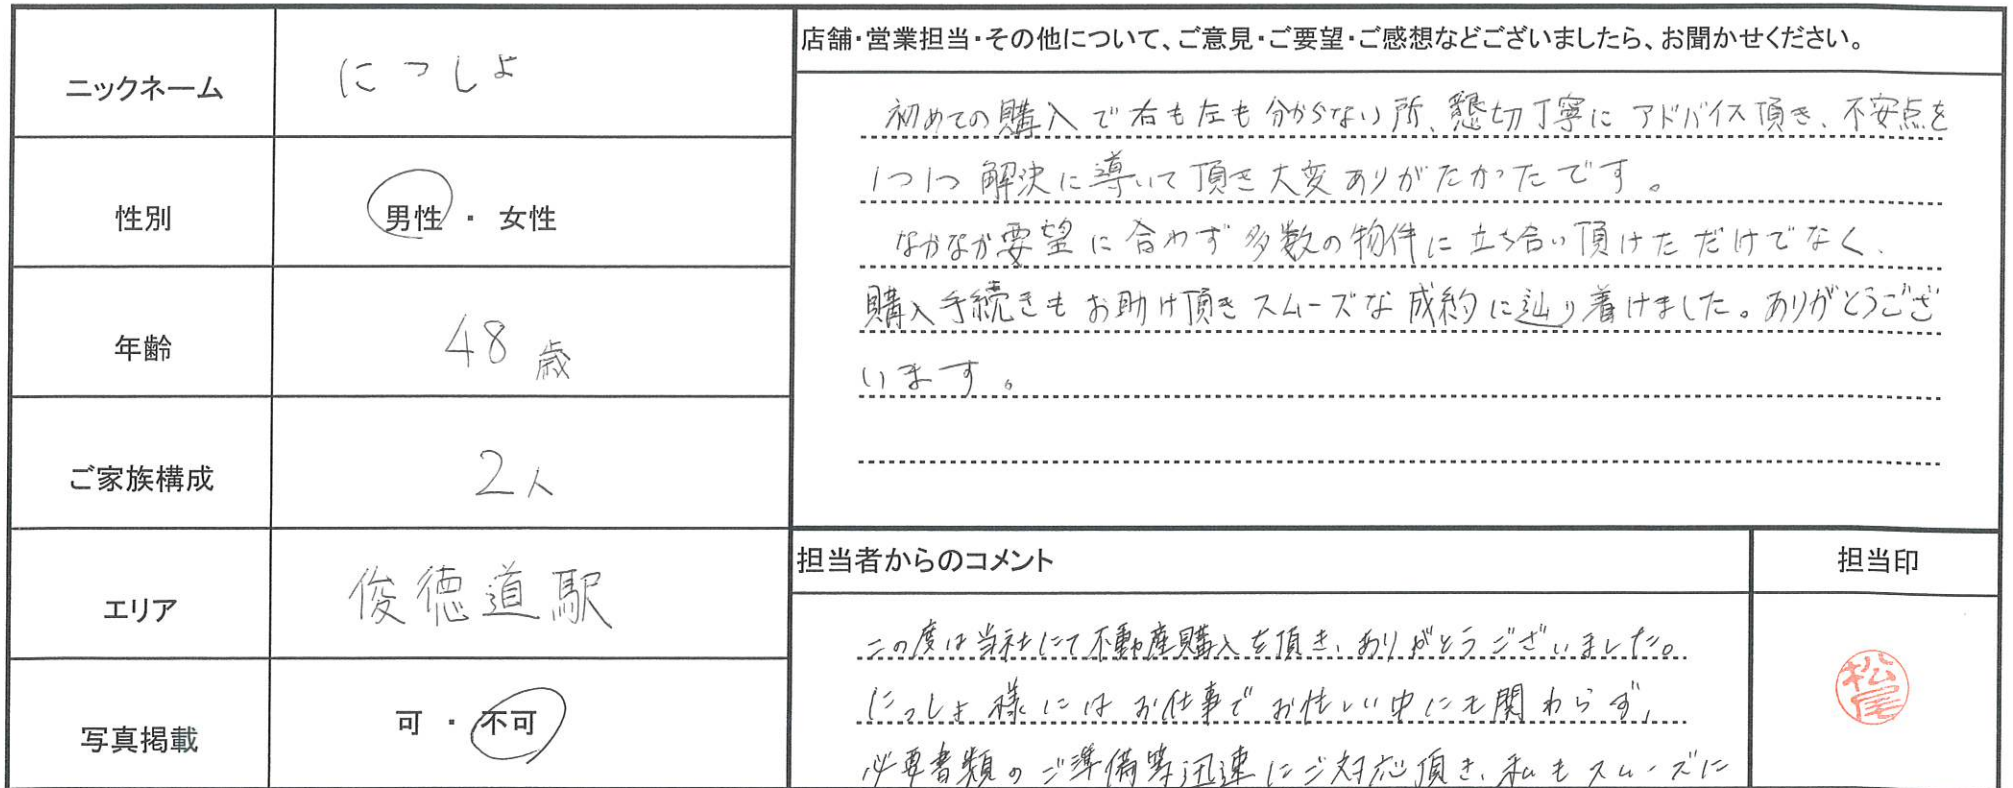 ニックネーム
にっしょ
性別
男性 ・ 女性
年齢
48歳
ご家族構成
2人
エリア
俊徳道駅
写真掲載
可 ・ 不可
店舗・営業担当・その他について、ご意見・ご要望・ご感想などございましたら、お聞かせください。
初めての購入で右も左も分からない所、懇切丁寧にアドバイス頂き、不安点を
1つ1つ解決に導いて頂き大変ありがたかったです。
なかなか要望に合わず多数の物件に立ち合い頂けただけでなく、
購入手続きもお助け頂きスムーズな成約に辿り着けました。ありがとうござ
います。
担当者からのコメント
この度は当社にて不動産購入を頂き、ありがとうございました。
にっしょ様にはお仕事でお忙しい中にも関わらず、
必要書類のご準備等迅速にご対応頂き、私もスムーズに
担当印
松尾